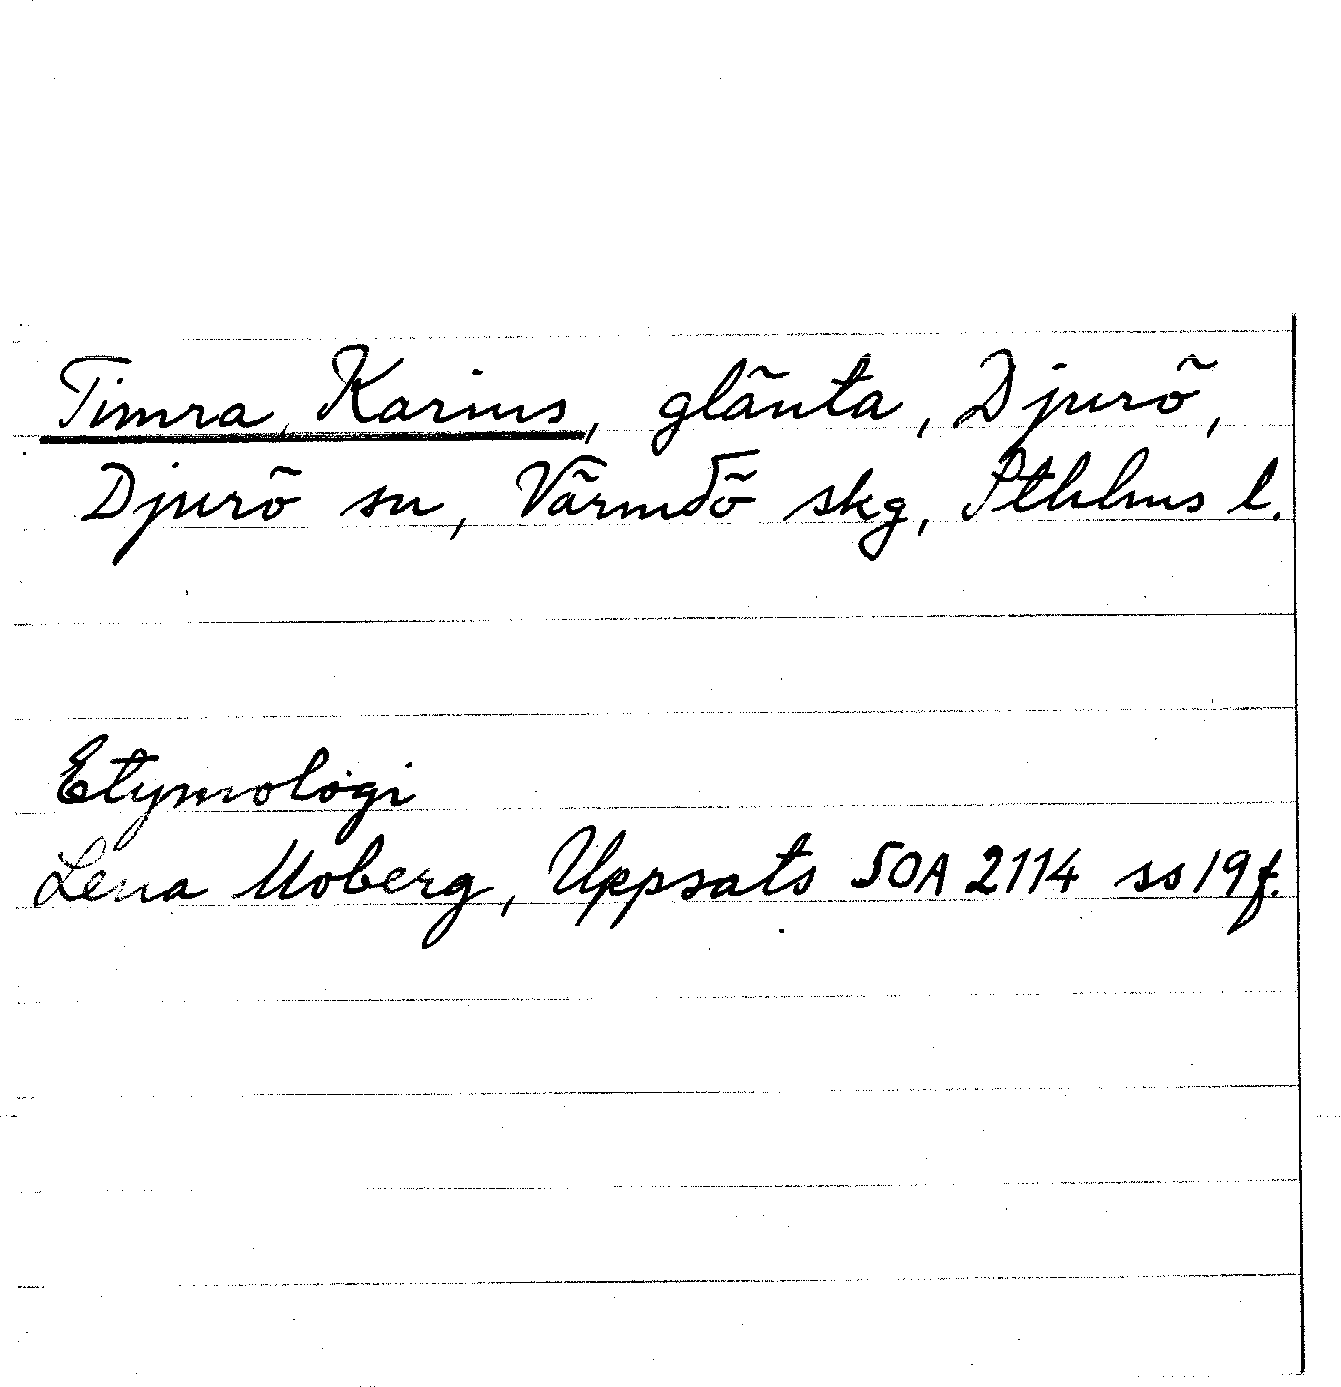 Timra Karins, glänta, Djurö,
Djurö sn, Värmdö skg, Sthlms l.
Etymologi
Lena Moberg, Uppsats SOA 2114 ss 19 f.